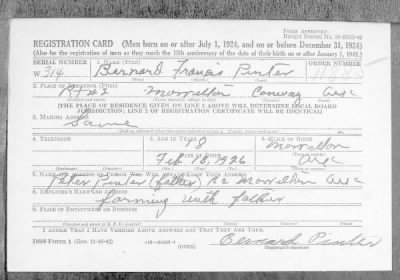 FORM APPROVED
REGISTRATION CARD (Men born on or after July 1, 1924, and on or before December 31, 1924)
(Also for the registration of men as they reach the 18th anniversary of the date of their birth on or after January 1, 1943.)
SERIAL NUMBER 1. NAME (Print)
W 314 Bernard Francis Pinter
2. PLACE OF RESIDENCE (Print)
Rt #2 Morrilton Conway Ark
[THE PLACE OF RESIDENCE GIVEN ON LINE 2 ABOVE WILL DETERMINE LOCAL BOARD
JURISDICTION; LINE 2 OF REGISTRATION CERTIFICATE WILL BE IDENTICAL]
3. MAILING ADDRESS
Same
4. TELEPHONE 5. AGE IN YEARS 6. PLACE OF BIRTH
18 Morrilton
DATE OF BIRTH
Feb 18, 1926 Ark
7. NAME AND ADDRESS OF PERSON WHO WILL ALWAYS KNOW YOUR ADDRESS
Peter Pinter (father) R2 Morrilton Ark
8. EMPLOYER'S NAME AND ADDRESS
farming with father
9. PLACE OF EMPLOYMENT OR BUSINESS
I AFFIRM THAT I HAVE VERIFIED ABOVE ANSWERS AND THAT THEY ARE TRUE.
DSS FORM 1 (Rev. 11-16-42) Bernard Pinter